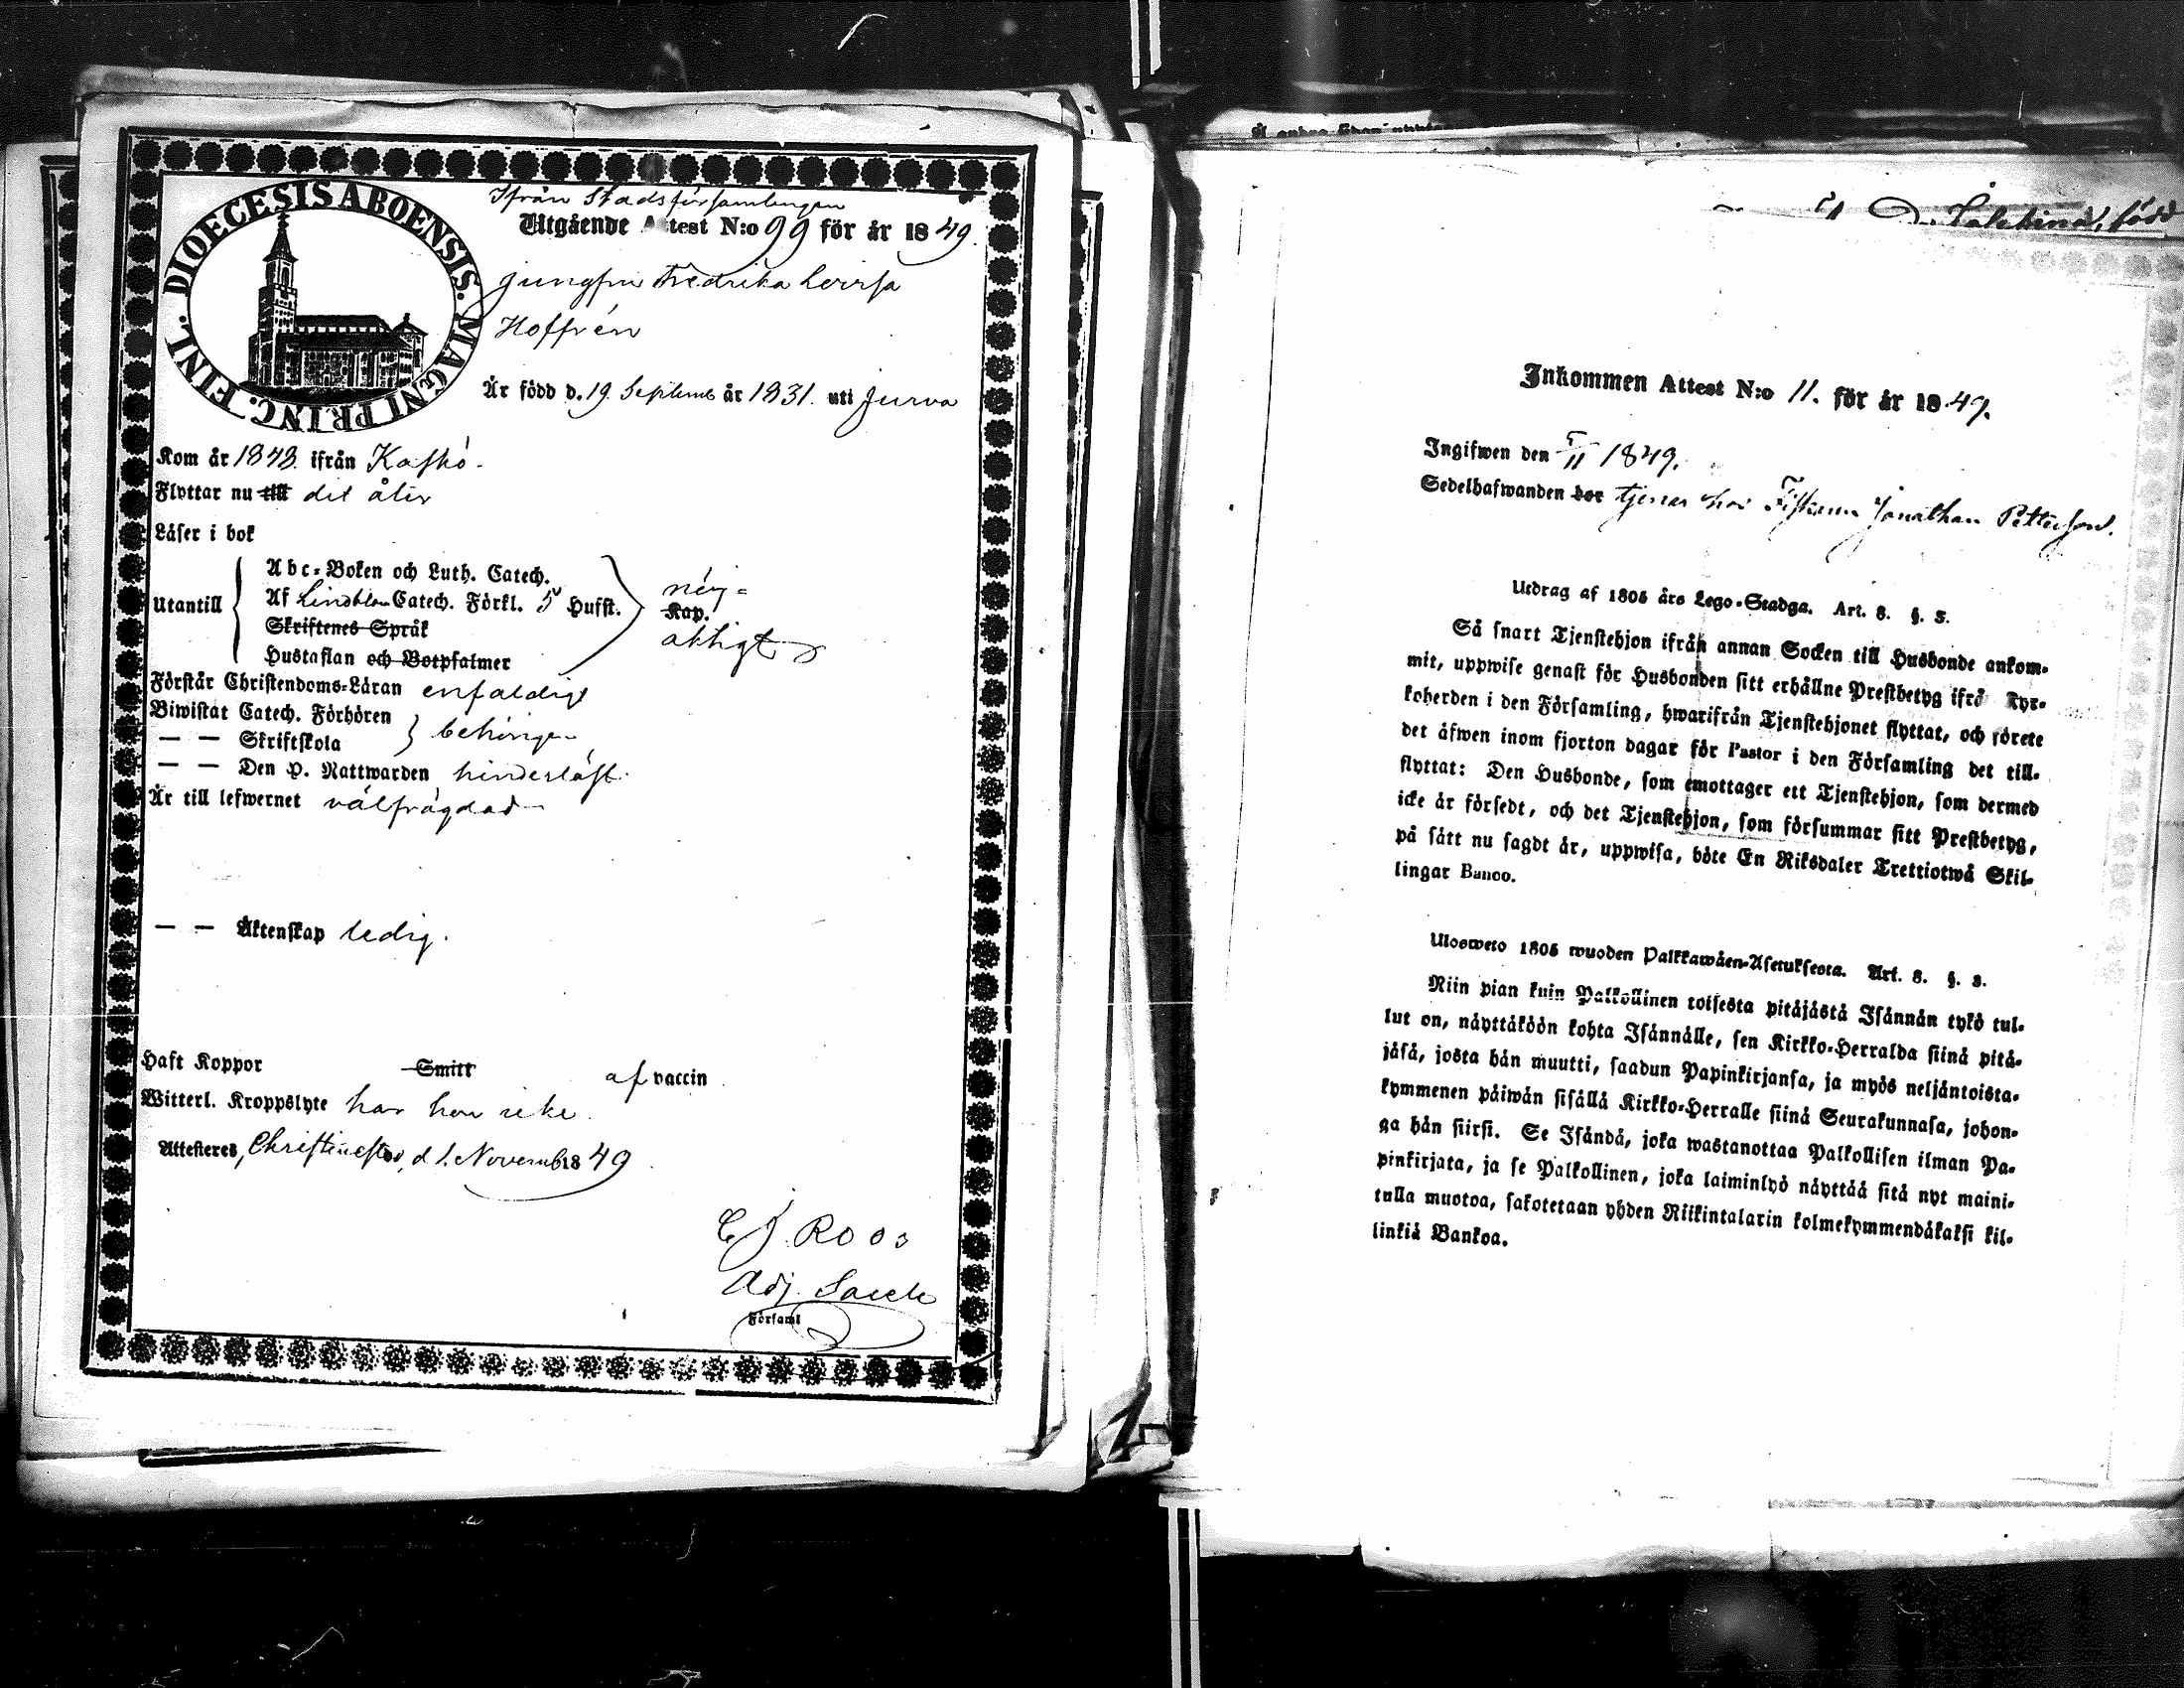 DIOECESIS ABOENSIS. MAGNI PRINC. FINL.
Ifrån Stadsförsamlingen
Utgående Attest N:o 99 för år 1849.
jungfru Fredrika Lovisa
Hoffrén
Är född d. 19 Septemb år 1831. uti Jurva
Kom år 1848. ifrån Kaskö.
Flyttar nu till dit åter
Läser i bok
Abc-Boken och Luth. Catech.
Utantill Af Lindblom Catech. Förkl. 5 Hufst. nöj-
Kap.
Skriftenes Språk aktigt
Hustaflan och Botpsalmer
Förstår Christendoms-Läran enfaldigt
Biwistat Catech. Förhören
— — Skriftskola behörigen
— — Den H. Nattwarden hinderlöst.
Är till lefwernet välfrägdad
— — Äktenskap ledig.
Haft Koppor Smitt af vaccin
Witterl. Kroppslyte har hon icke.
Attesteres, Christinestad, d 1. Novemb 1849
C J. Roos
Adj. Sacell
Församl
född
Inkommen Attest N:o 11. för år 1849.
Ingifwen den 5/11 1849.
Sedelhafwanden bor tjenar hos Fiskaren Jonathan Petterson.
Utdrag af 1805 års Lego-Stadga. Art. 8. §. 3.
Så snart Tjenstehjon ifrån annan Socken till Husbonde ankom-
mit, uppwise genast för Husbonden sitt erhållne Prestbetyg ifrå Kyr-
koherden i den Församling, hwarifrån Tjenstehjonet flyttat, och förete
det äfwen inom fjorton dagar för Pastor i den Församling det till-
flyttat: Den Husbonde, som emottager ett Tjenstehjon, som dermed
icke är försedt, och det Tjenstehjon, som försummar sitt Prestbetyg,
på sätt nu sagdt är, uppwisa, böte En Riksdaler Trettiotwå Skil-
lingar Banco.
Ulosweto 1805 wuoden Palkkawäen-Asetuksesta. Art. 8. §. 3.
Niin pian kuin Palkollinen toisesta pitäjästä Isännän tykö tul-
lut on, näyttäköön kohta Isännälle, sen Kirkko-Herralda siinä pitä-
jäsä, josta hän muutti, saadun Papinkirjansa, ja myös neljäntoista-
kymmenen päiwän sisällä Kirkko-Herralle siinä Seurakunnasa, johon-
ga hän siirsi. Se Isändä, joka wastanottaa Palkollisen ilman Pa-
pinkirjata, ja se Palkollinen, joka laiminlyö näyttää sitä nyt maini-
tulla muotoa, sakotetaan yhden Riikintalarin kolmekymmendäkaksi kil-
linkiä Bankoa.